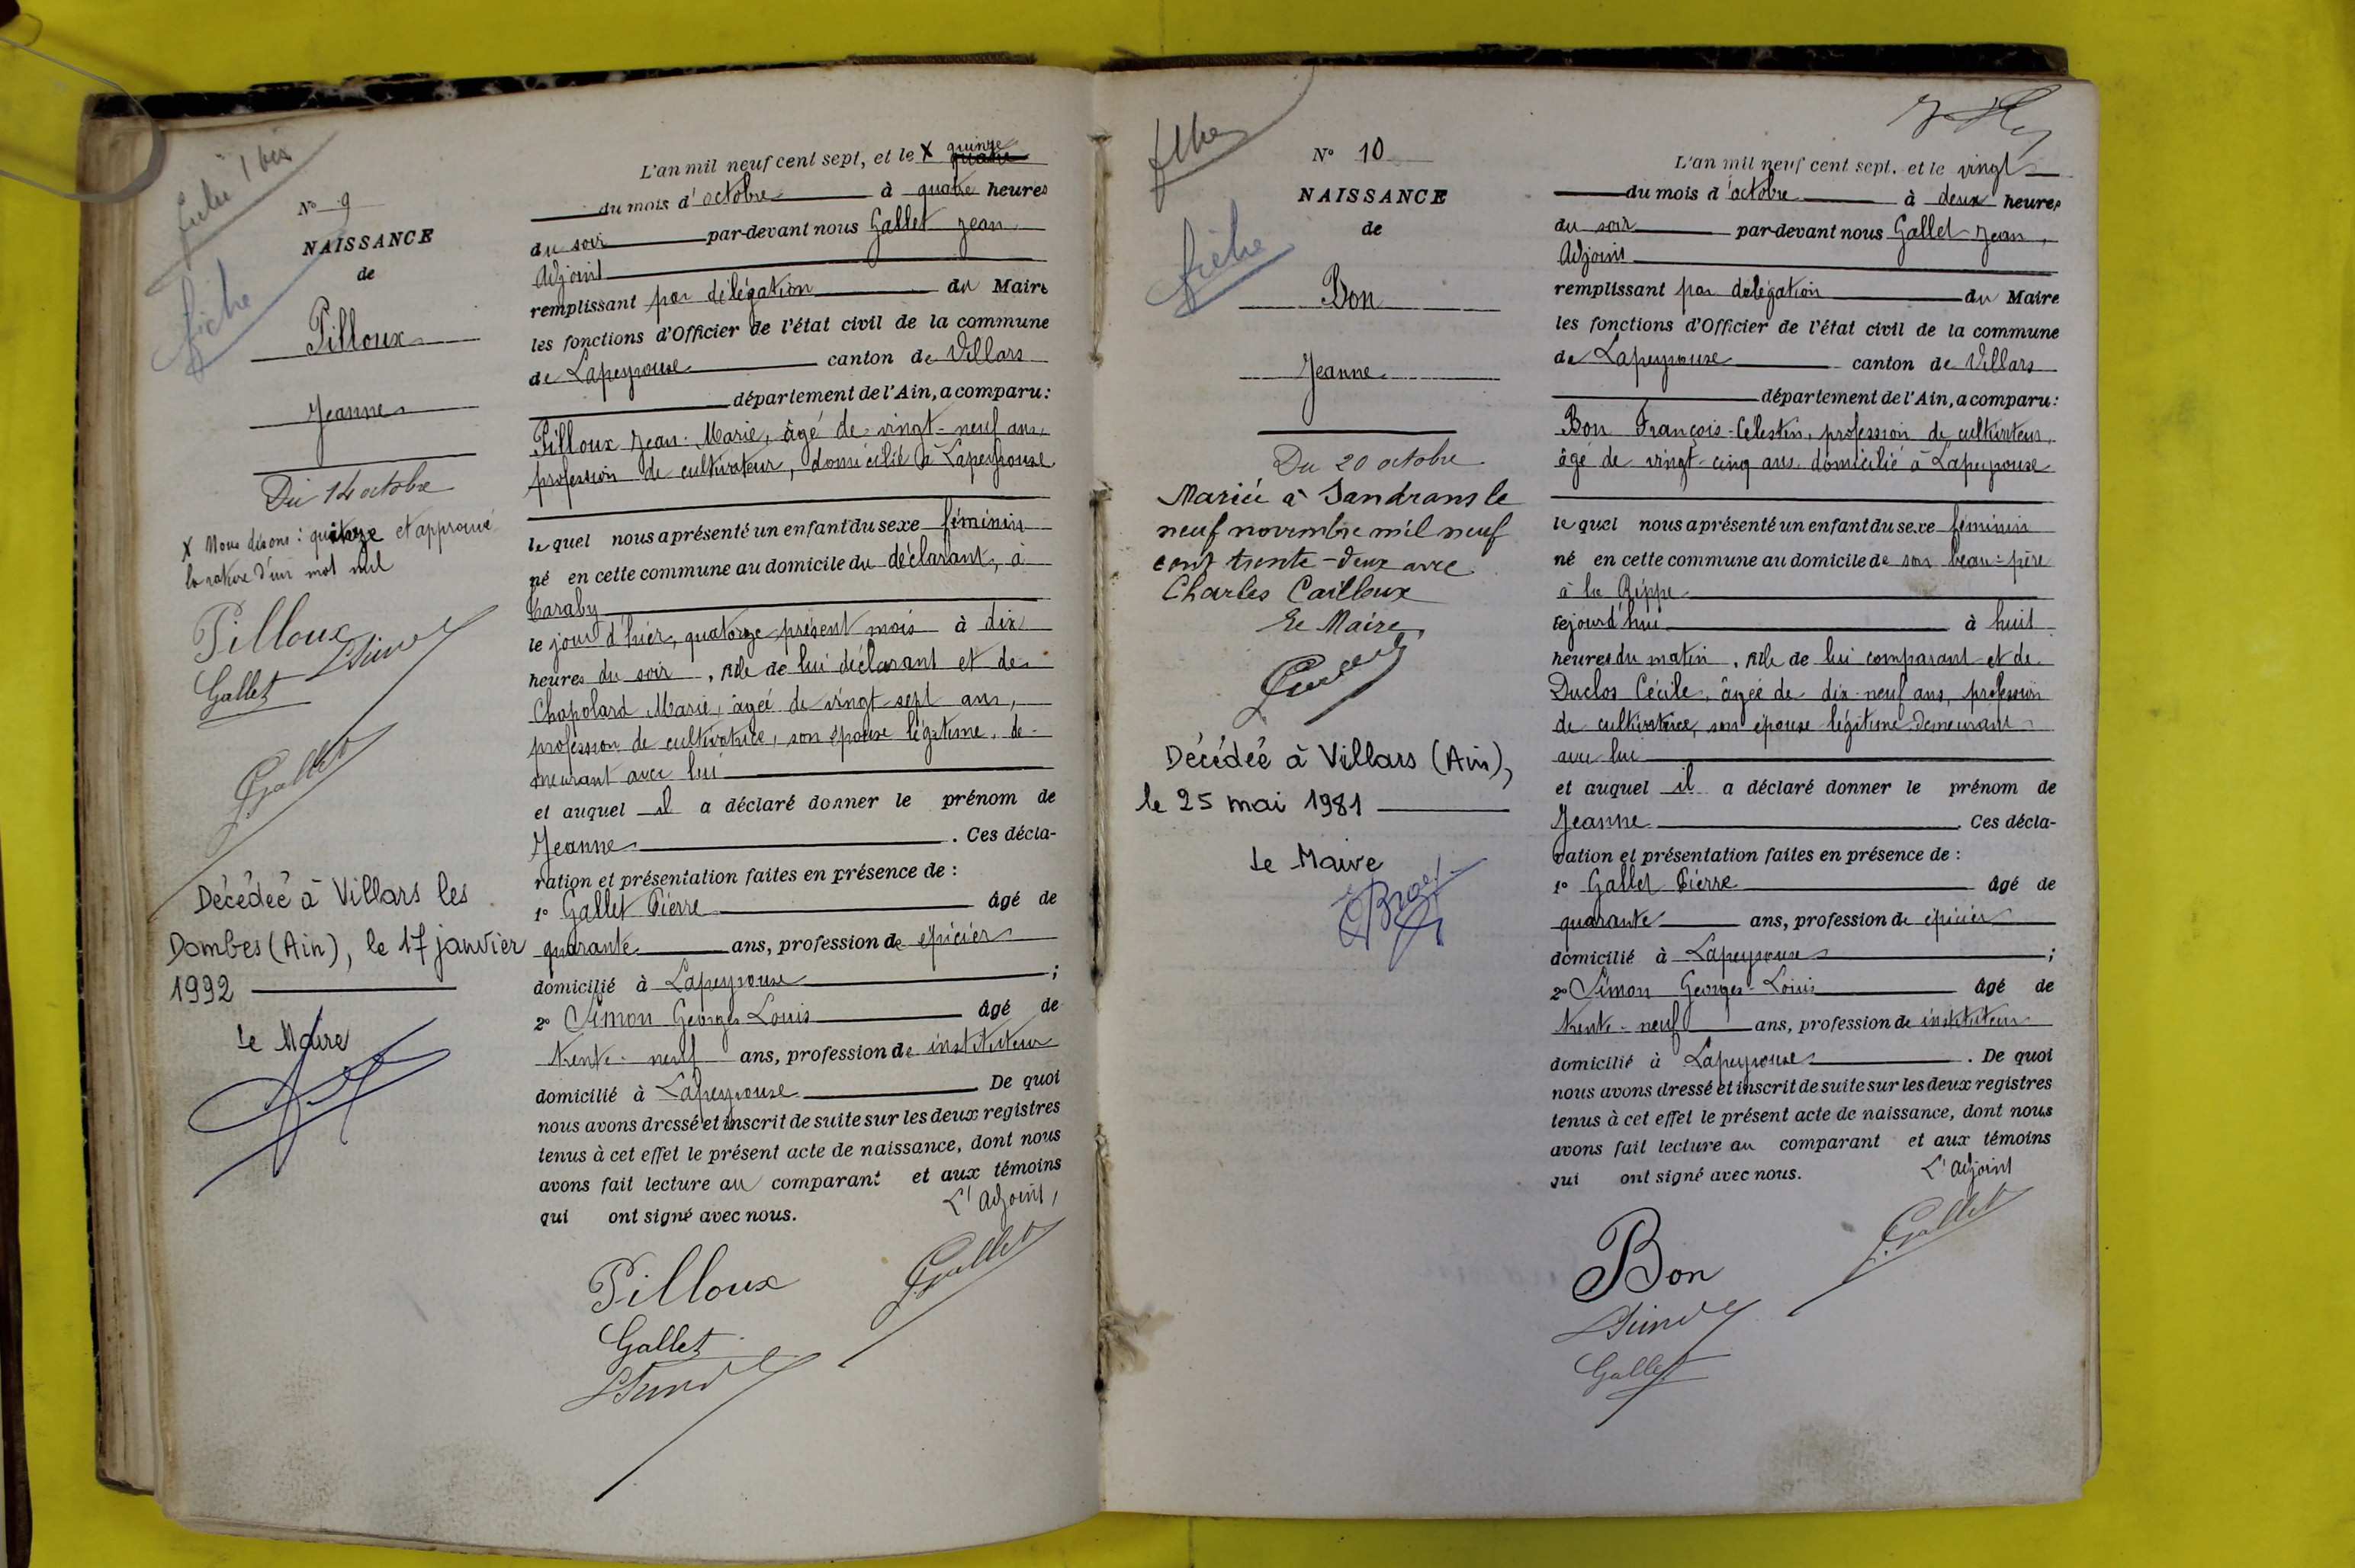 fiche 1 bis
fiche
N° 9
NAISSANCE
de
Pilloux
Jeanne
Du 14 octobre
X Nous disons : quinze et approuvé
la rature d'un mot nul
Pilloux
Gallet
Gallet
Décédée à Villars les
Dombes (Ain), le 17 janvier
1992
Le Maire
L'an mil neuf cent sept, et le X quinze
du mois d'octobre à quatre heures
du soir par-devant nous Gallet Jean
Adjoint
remplissant par délégation du Maire
les fonctions d'Officier de l'état civil de la commune
de Lapeyrouse canton de Villars
département de l'Ain, a comparu :
Pilloux Jean-Marie, âgé de vingt-neuf ans,
profession de cultivateur, domicilié à Lapeyrouse
lequel nous a présenté un enfant du sexe féminin
né en cette commune au domicile du déclarant, à
Caraby
le jour d'hier, quatorze présent mois à dix
heures du soir, née de lui déclarant et de
Chapolard Marie, âgée de vingt-sept ans,
profession de cultivatrice, son épouse légitime, de-
meurant avec lui
et auquel il a déclaré donner le prénom de
Jeanne. Ces décla-
ration et présentation faites en présence de :
1° Gallet Pierre âgé de
quarante ans, profession de épicier
domicilié à Lapeyrouse ;
2° Simon Georges Louis âgé de
trente-neuf ans, profession de instituteur
domicilié à Lapeyrouse De quoi
nous avons dressé et inscrit de suite sur les deux registres
tenus à cet effet le présent acte de naissance, dont nous
avons fait lecture au comparant et aux témoins
qui ont signé avec nous. L'Adjoint,
Pilloux
Gallet
Gallet
fiche
N° 10
NAISSANCE
de
fiche
Bon
Jeanne
Du 20 octobre
Mariée à Sandrans le
neuf novembre mil neuf
cent trente-deux avec
Charles Cailloux
Le Maire
Décédée à Villars (Ain),
le 25 mai 1981
Le Maire
L'an mil neuf cent sept, et le vingt
du mois d'octobre à deux heures
du soir par-devant nous Gallet Jean,
Adjoint
remplissant par délégation du Maire
les fonctions d'Officier de l'état civil de la commune
de Lapeyrouse canton de Villars
département de l'Ain, a comparu :
Bon François-Célestin, profession de cultivateur,
âgé de vingt-cinq ans, domicilié à Lapeyrouse
lequel nous a présenté un enfant du sexe féminin
né en cette commune au domicile de son beau-père
à la Rippe
cejourd'hui à huit
heures du matin, née de lui comparant et de
Duclos Cécile, âgée de dix-neuf ans, profession
de cultivatrice, son épouse légitime demeurant
avec lui
et auquel il a déclaré donner le prénom de
Jeanne. Ces décla-
ration et présentation faites en présence de :
1° Gallet Pierre âgé de
quarante ans, profession de épicier
domicilié à Lapeyrouse ;
2° Simon Georges-Louis âgé de
trente-neuf ans, profession de instituteur
domicilié à Lapeyrouse. De quoi
nous avons dressé et inscrit de suite sur les deux registres
tenus à cet effet le présent acte de naissance, dont nous
avons fait lecture au comparant et aux témoins
qui ont signé avec nous. L'Adjoint
Bon
Gallet
Gallet